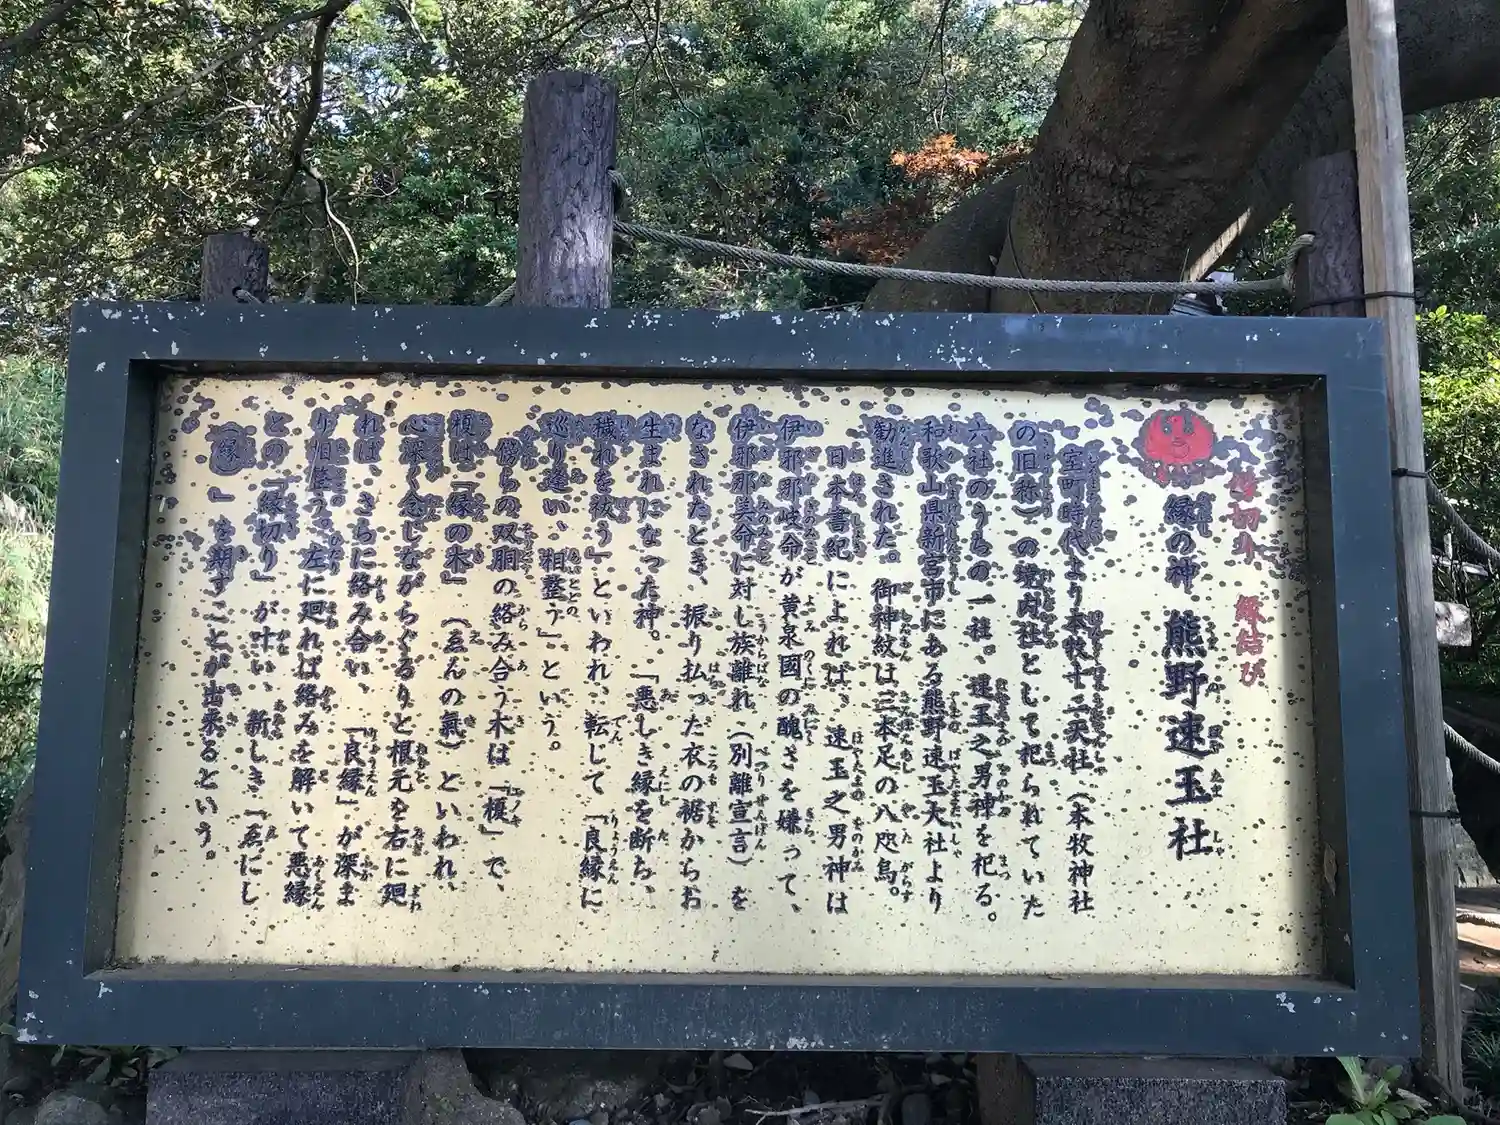 縁切り 縁結び
縁の神 熊野速玉社
室町時代より本牧十二天社(本牧神社
の旧称)の境内社として祀られていた
六社のうちの一社、速玉之男神を祀る。
和歌山県新宮市にある熊野速玉大社より
勧進された。御神紋は三本足の八咫烏。
日本書紀によれば、速玉之男神は
伊邪那岐命が黄泉國の醜さを嫌って、
伊邪那美命に対し族離れ(別離宣言)を
なされたとき、振り払った衣の裾からお
生まれになった神。「悪しき縁を断ち、
穢れを祓う」といわれ、転じて「良縁に
巡り逢い、相整う」という。
傍らの双胴の絡み合う木は「榎」で、
榎は「縁の木」(ゑんの氣)といわれ、
心深く念じながらぐるりと根元を右に廻
れば、さらに絡み合い、「良縁」が深ま
り相整う。左に廻れば絡みを解いて悪縁
との「縁切り」が叶い、新しき「ゑにし
(縁)」を期すことが出来るという。